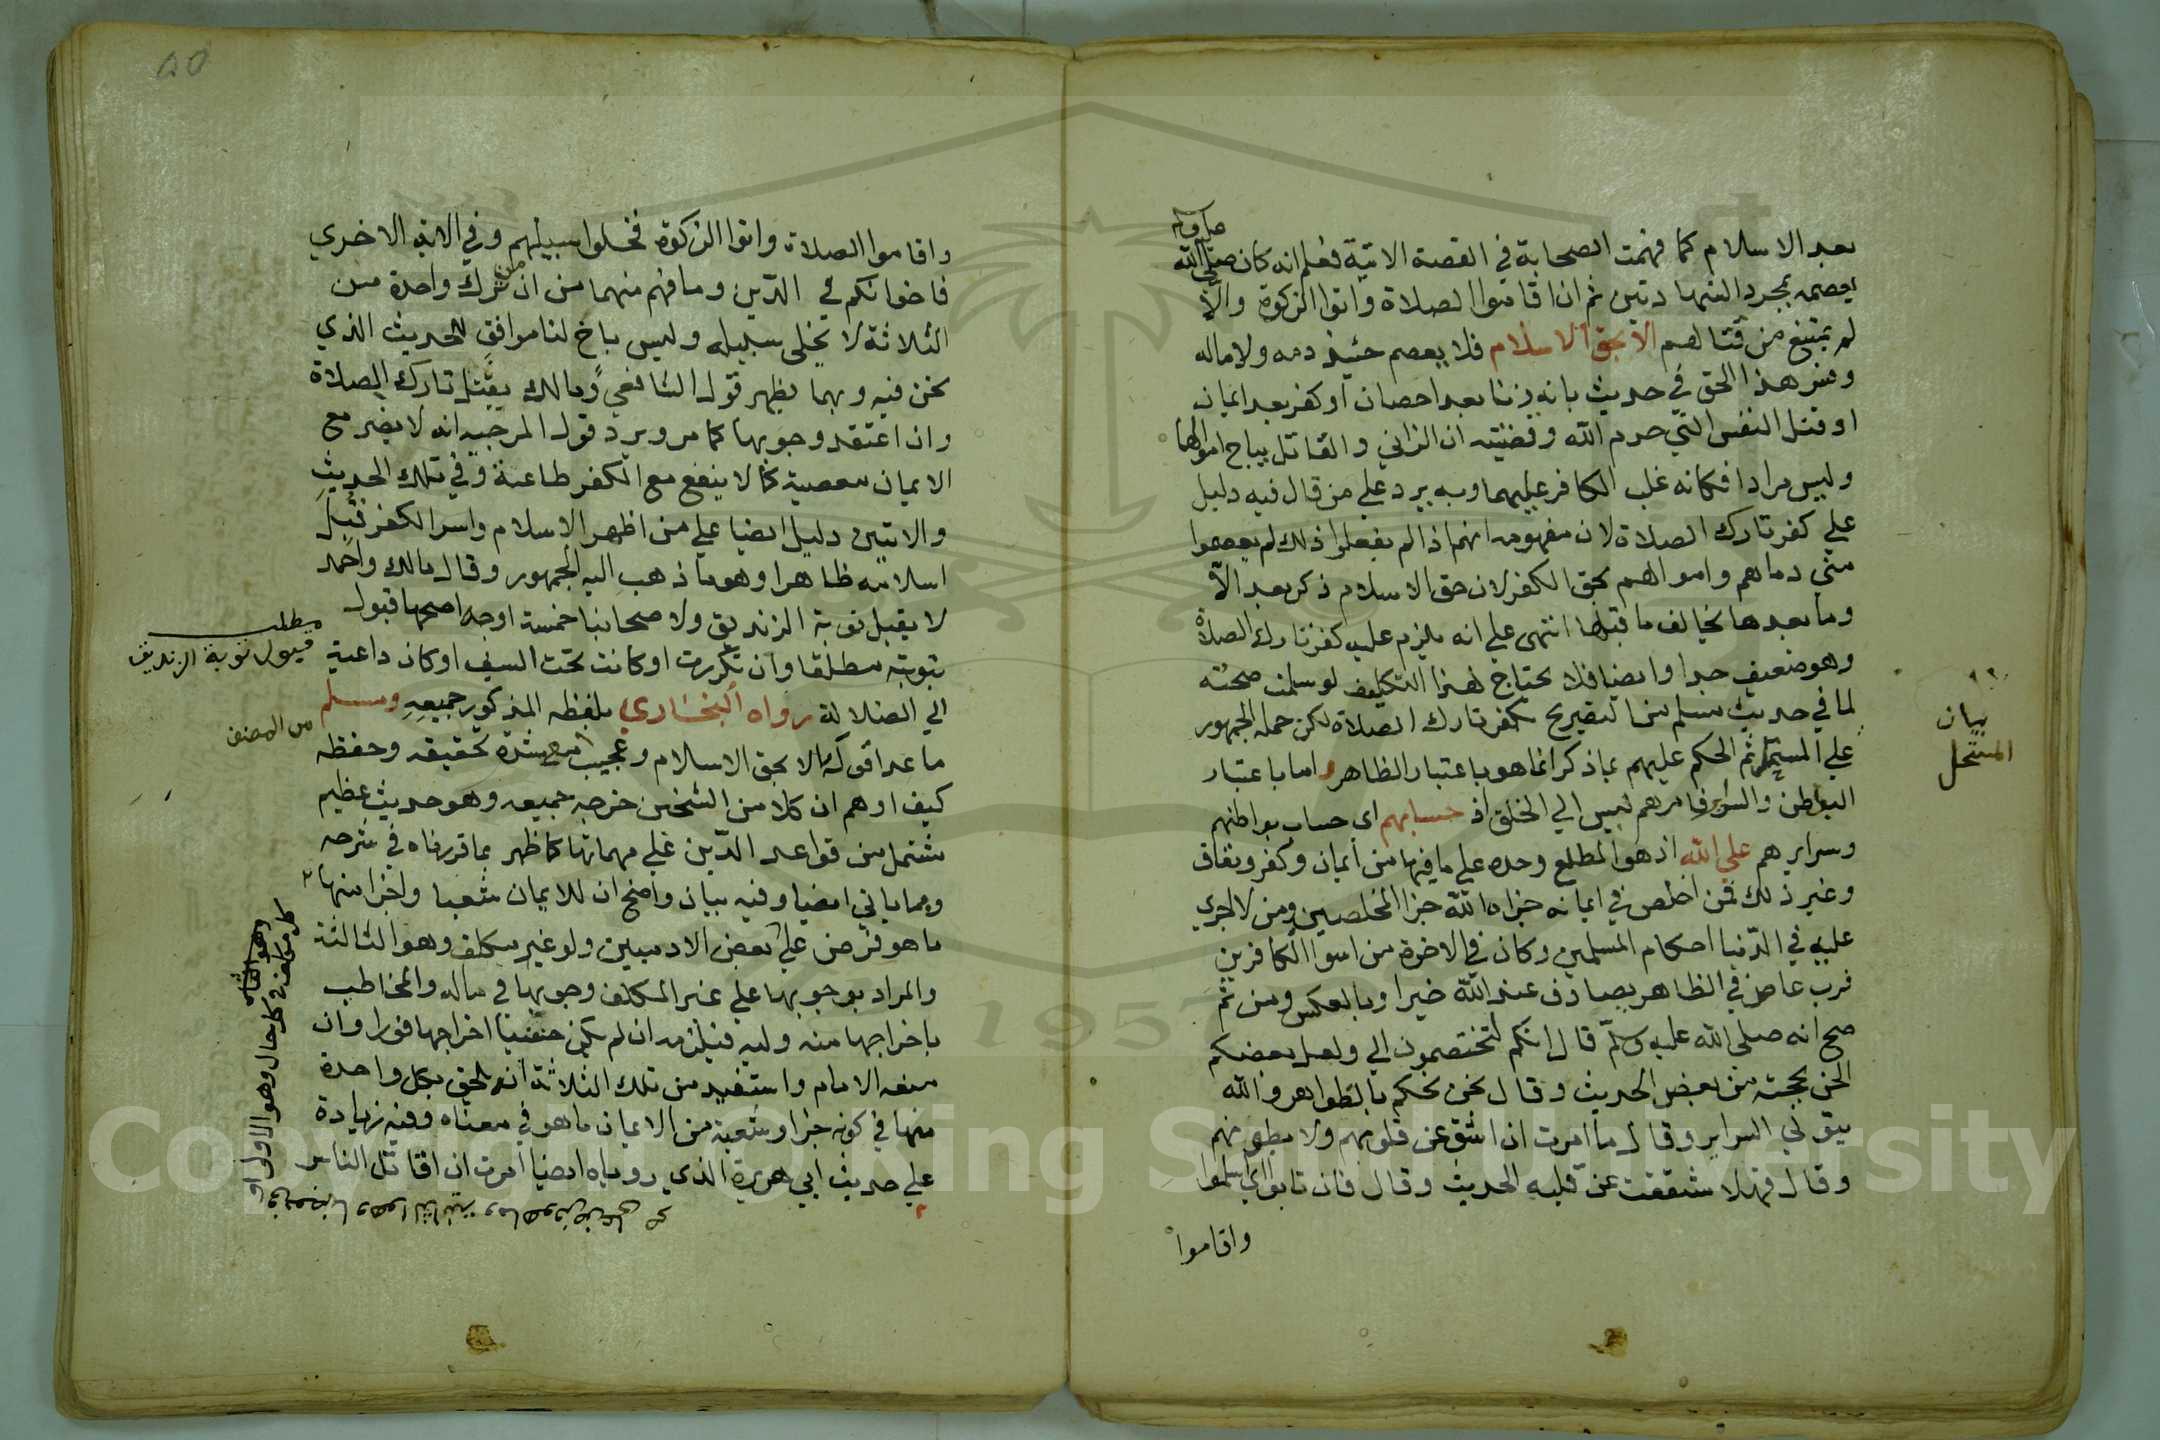 بعد الاسلام كما فهمت الصحابة في القصة الاتية فعلم انه كان صلى الله
يعصم بمجرد الشهادتين ثم ان اقاموا الصلاة واتوا الزكوة والا
لم يمتنع من قتالهم الا بحق الاسلام فلا يعصم حينئذ دمه ولا ماله
وفسر هذا الحق في حديث بانه زنا بعد احصان او كفر بعد ايمان
او قتل النفس التي حرم الله وقضيته ان الزاني والقاتل يباح اموالهما
وليس مرادا فكانه غلب الكافر عليهما وبه يرد علي من قال فيه دليل
علي كفر تارك الصلاة لان مفهومه انهم اذا لم يفعلوا ذلك لم يعصموا
مني دماهم واموالهم بحق الكفر لان حق الاسلام ذكر بعد الا
وما بعدها يخالف ما قبلها انتهى علي انه يلزم عليه كفر تارك الصلاة
وهو ضعيف جدا وايضا فلا يحتاج لهذا التكليف لو سلمت صحته
لما في حديث مسلم من التصريح بكفر تارك الصلاة لكن حمله الجمهور
علي المستحل ثم الحكم عليهم بما ذكر انما هو باعتبار الظاهر واما باعتبار
البواطن والسراير فامرهم ليس الي الخلق اذ حسابهم اي حساب بواطنهم
وسرايرهم علي الله اذ هو المطلع وحده علي ما فيها من ايمان وكفر ونفاق
وغير ذلك فمن اخلص في ايمانه جزاه الله جزا المخلصين ومن لا اجري
عليه في الدنيا احكام المسلمين وكان في الاخرة من اسوا الكافرين
فرب عاص في الظاهر يصادف عند الله خيرا وبالعكس ومن ثم
صح انه صلى الله عليه وسلم قال انكم لتختصمون الي ولعل بعضكم
الحن بحجته من بعض الحديث وقال نحن نحكم بالظواهر والله
يتولي السراير وقال ما امرت ان اشق عن قلوبهم ولا بطونهم
وقال فهلا شققت عن قلبه الحديث وقال فان تابوا اي اسلموا
واقاموا
بيان
المستحل
واقاموا الصلاة واتوا الزكوة فخلوا سبيلهم وفي الاية الاخري
فاخوانكم في الدين وما فهم منهما من ان من ترك واحدة من
الثلاثة لا يخلى سبيله وليس باخ لنا موافق للحديث الذي
نحن فيه وبهما يظهر قول الشافعي ومالك يقتل تارك الصلاة
وان اعتقد وجوبها كما مر ويرد قول المرجية انه لا يضر مع
الايمان معصية كما لا ينفع مع الكفر طاعة وفي تلك الحديث
والايتين دليل ايضا علي من اظهر الاسلام واسر الكفر قبل
اسلامه ظاهرا وهو ما ذهب اليه الجمهور وقال مالك واحمد
لا يقبل توبة الزنديق ولاصحابنا خمسة اوجه اصحها قبول
توبته مطلقا وان تكررت او كانت تحت السيف او كان داعية
الي الضلالة رواه البخاري بلفظه المذكور جميعه ومسلم
ما عدا قوله الا بحق الاسلام وعجيب مع شدة تحقيقه وحفظه
كيف اوهم ان كلا من الشيخين خرجه جميعه وهو حديث عظيم
مشتمل من قواعد الدين علي مهماتها كما ظهر مما قررناه في شرحه
ومما ياتي ايضا وفيه بيان واضح ان للايمان شعبا واجزا منها
ما هو فرض علي بعض الادميين ولو غير مكلف وهو الثالثة
والمراد بوجوبها علي غير المكلف وجوبها في ماله والمخاطب
باخراجها منه وليه فيلزمه ان لم يكن حنفيا اخراجها فورا وان
منعه الامام واستفيد من تلك الثلاثة انه يلحق بكل واحدة
منها في كونه جزا وشعبة من الايمان ما هو في معناه وفيه زيادة
علي حديث ابي هريرة الذي روياه ايضا امرت ان اقاتل الناس
مطلب
قبول توبة الزنديق
من المصنف
كل مكلف في كل حال وهو الاولى او